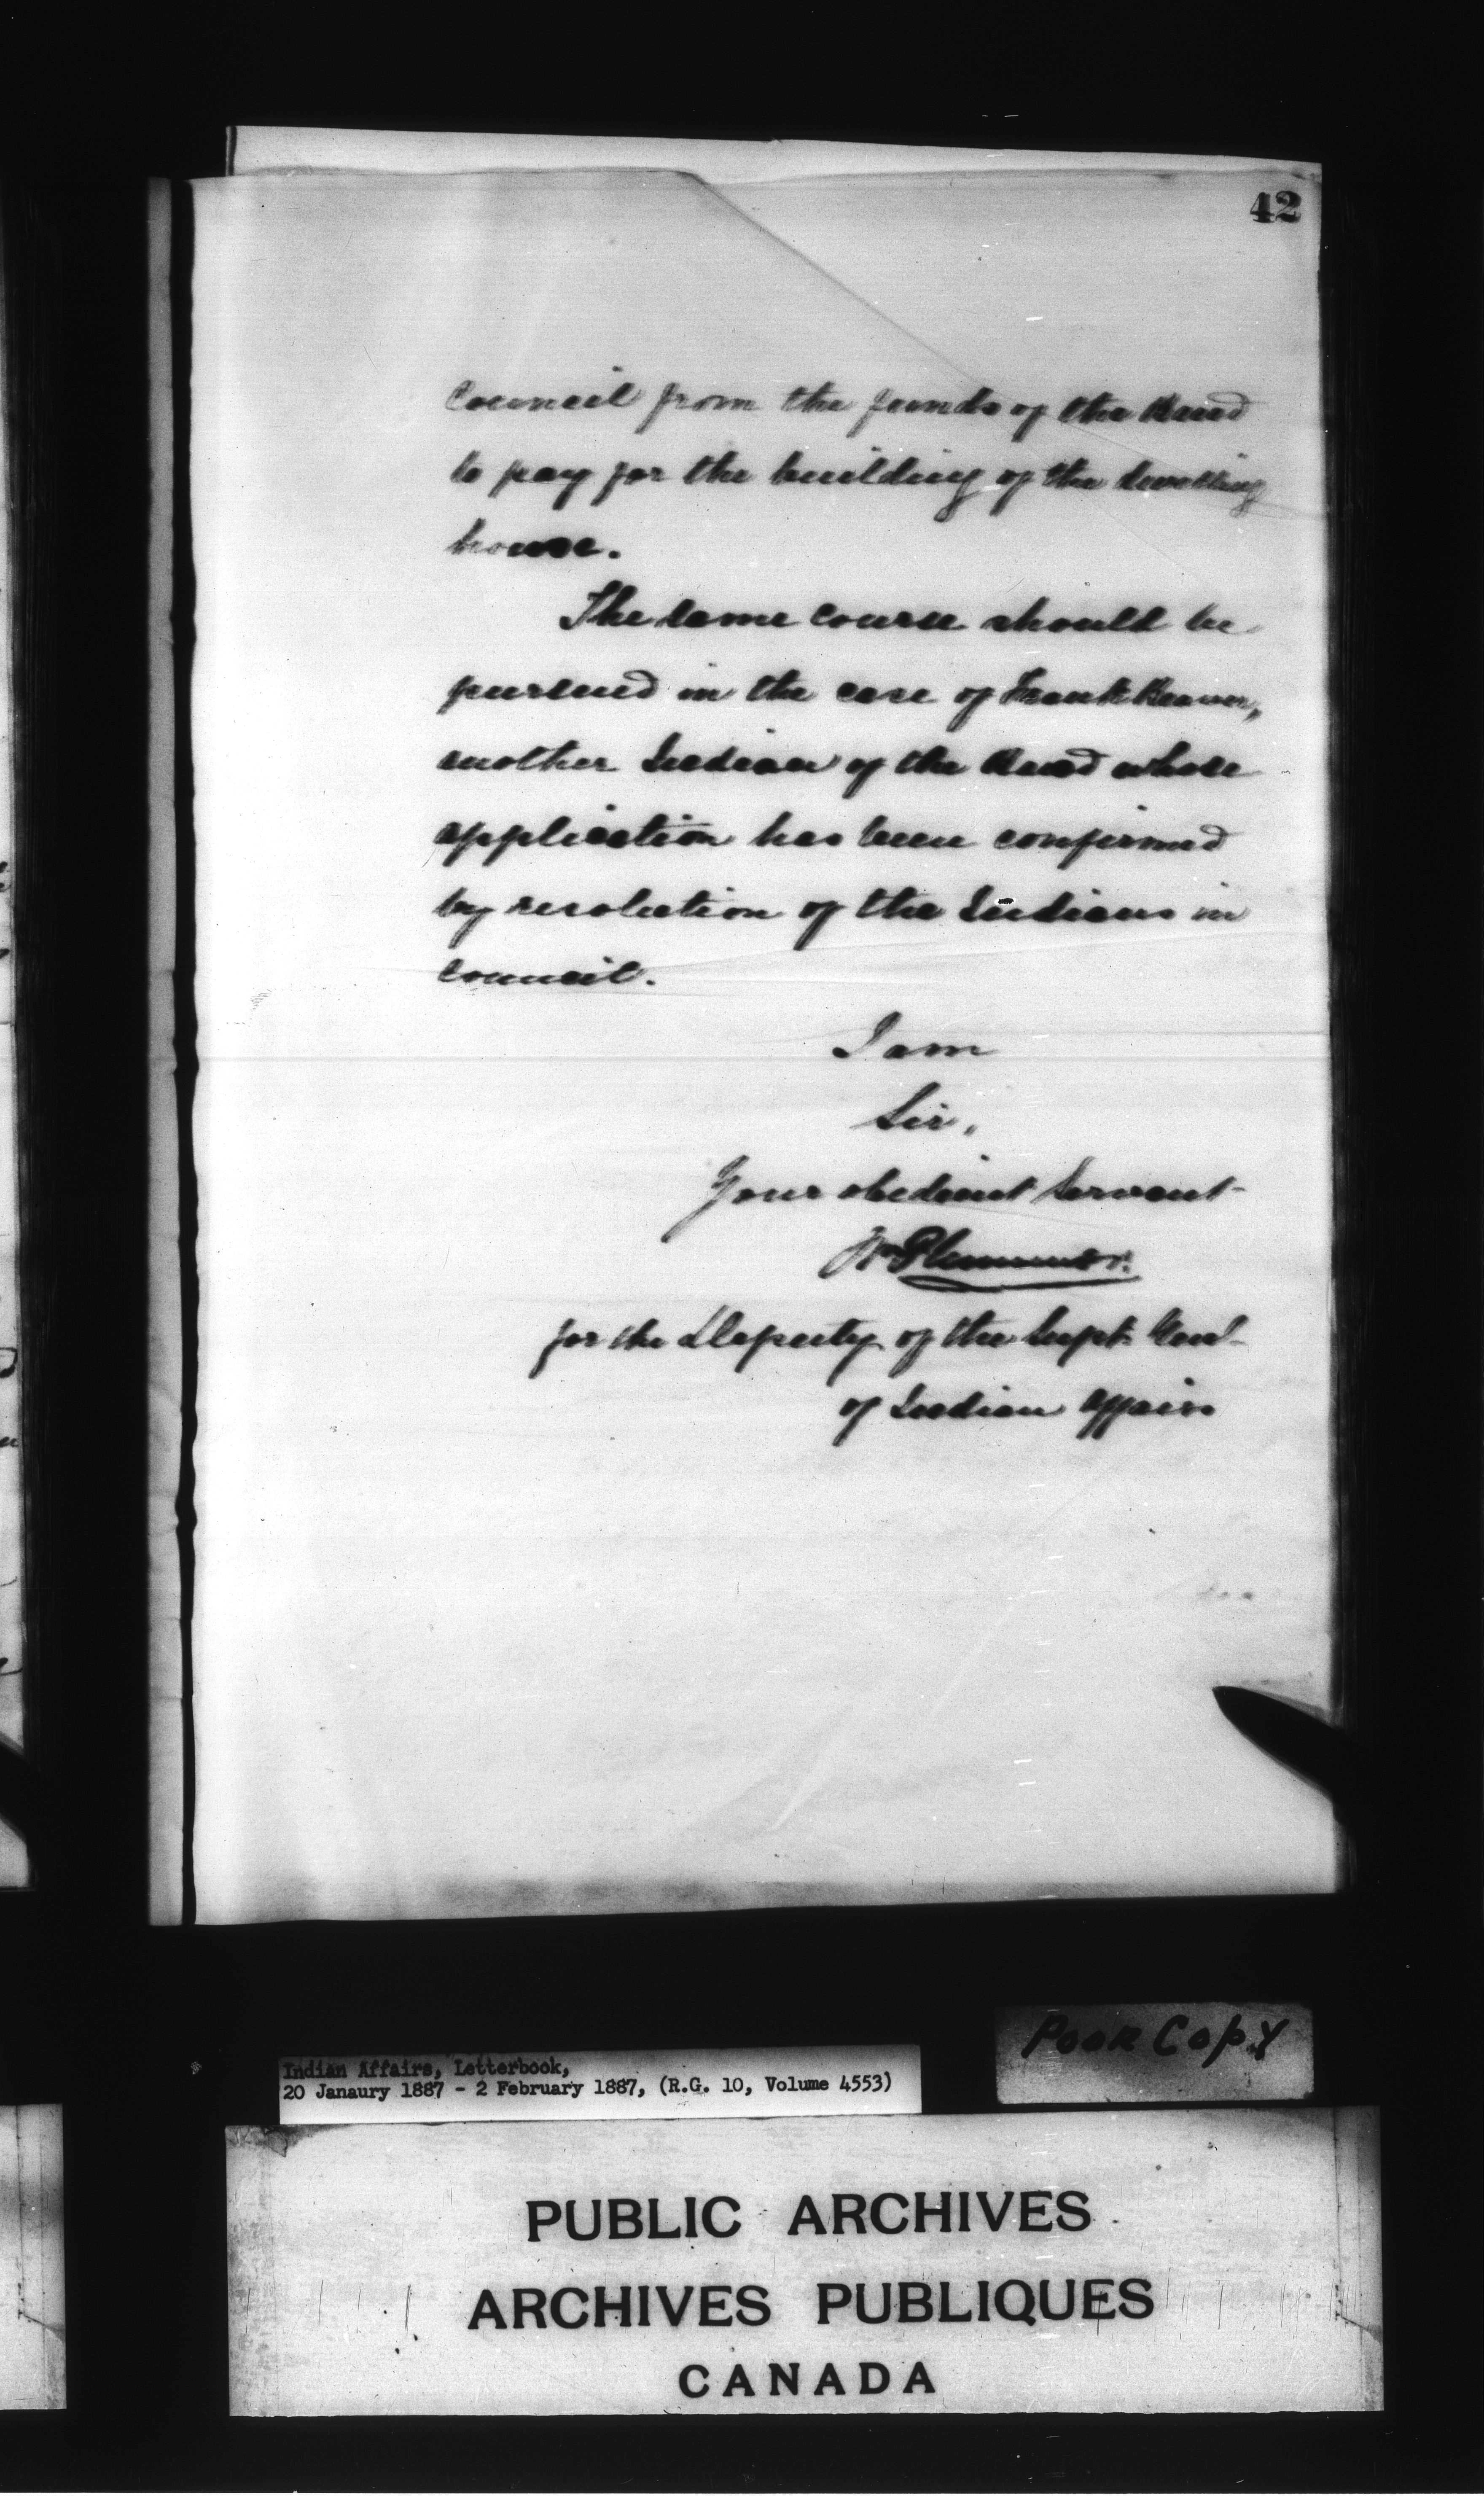 42
Council from the funds of the Band
to pay for the building of the dwelling
house.
The same course should be
pursued in the case of Frank Beaver,
another Indian of the Band whose
application has been confirmed
by resolution of the Indians in
Council.
I am
Sir,
Your obedient Servant
Wm Plummer.
for the Deputy of the Supt. Genl
of Indian Affairs
Poor Copy
Indian Affairs, Letterbook,
20 Janaury 1887 - 2 February 1887, (R.G. 10, Volume 4553)
PUBLIC ARCHIVES
ARCHIVES PUBLIQUES
CANADA